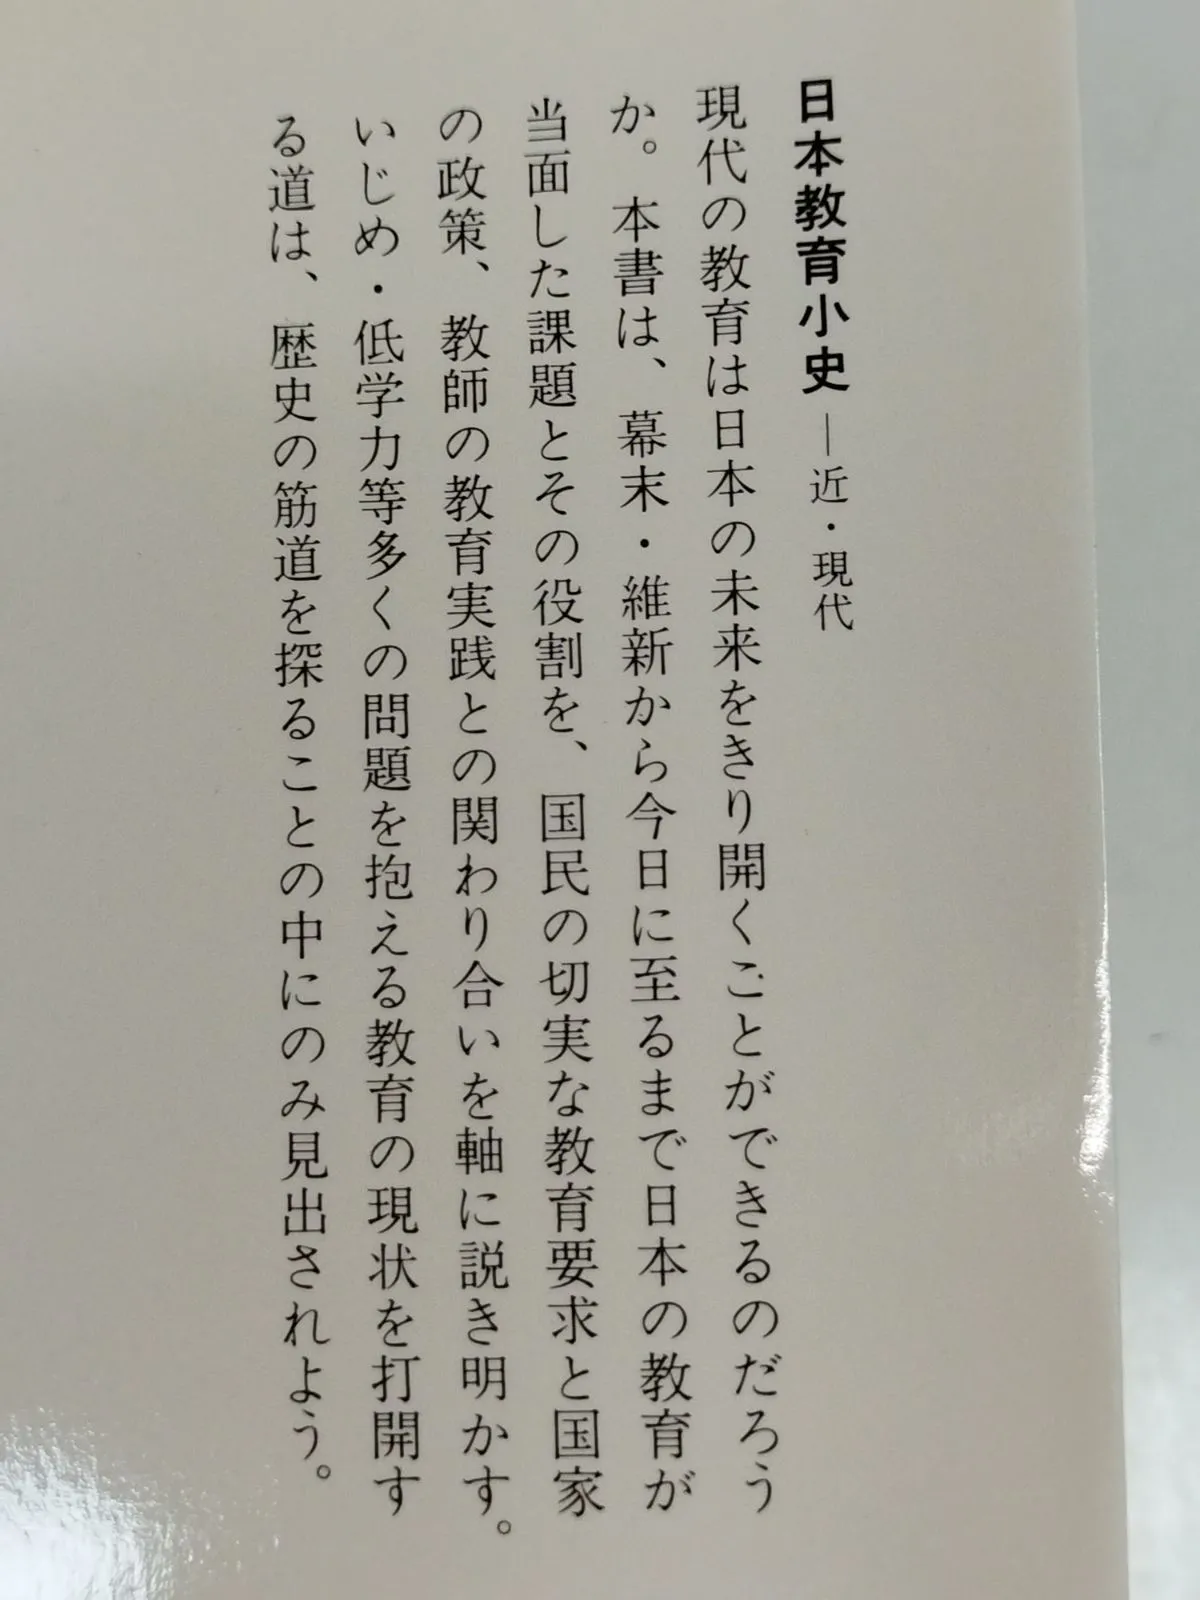 日本教育小史―近・現代
現代の教育は日本の未来をきり開くことができるのだろう
か。本書は、幕末・維新から今日に至るまで日本の教育が
当面した課題とその役割を、国民の切実な教育要求と国家
の政策、教師の教育実践との関わり合いを軸に説き明かす。
いじめ・低学力等多くの問題を抱える教育の現状を打開す
る道は、歴史の筋道を探ることの中にのみ見出されよう。